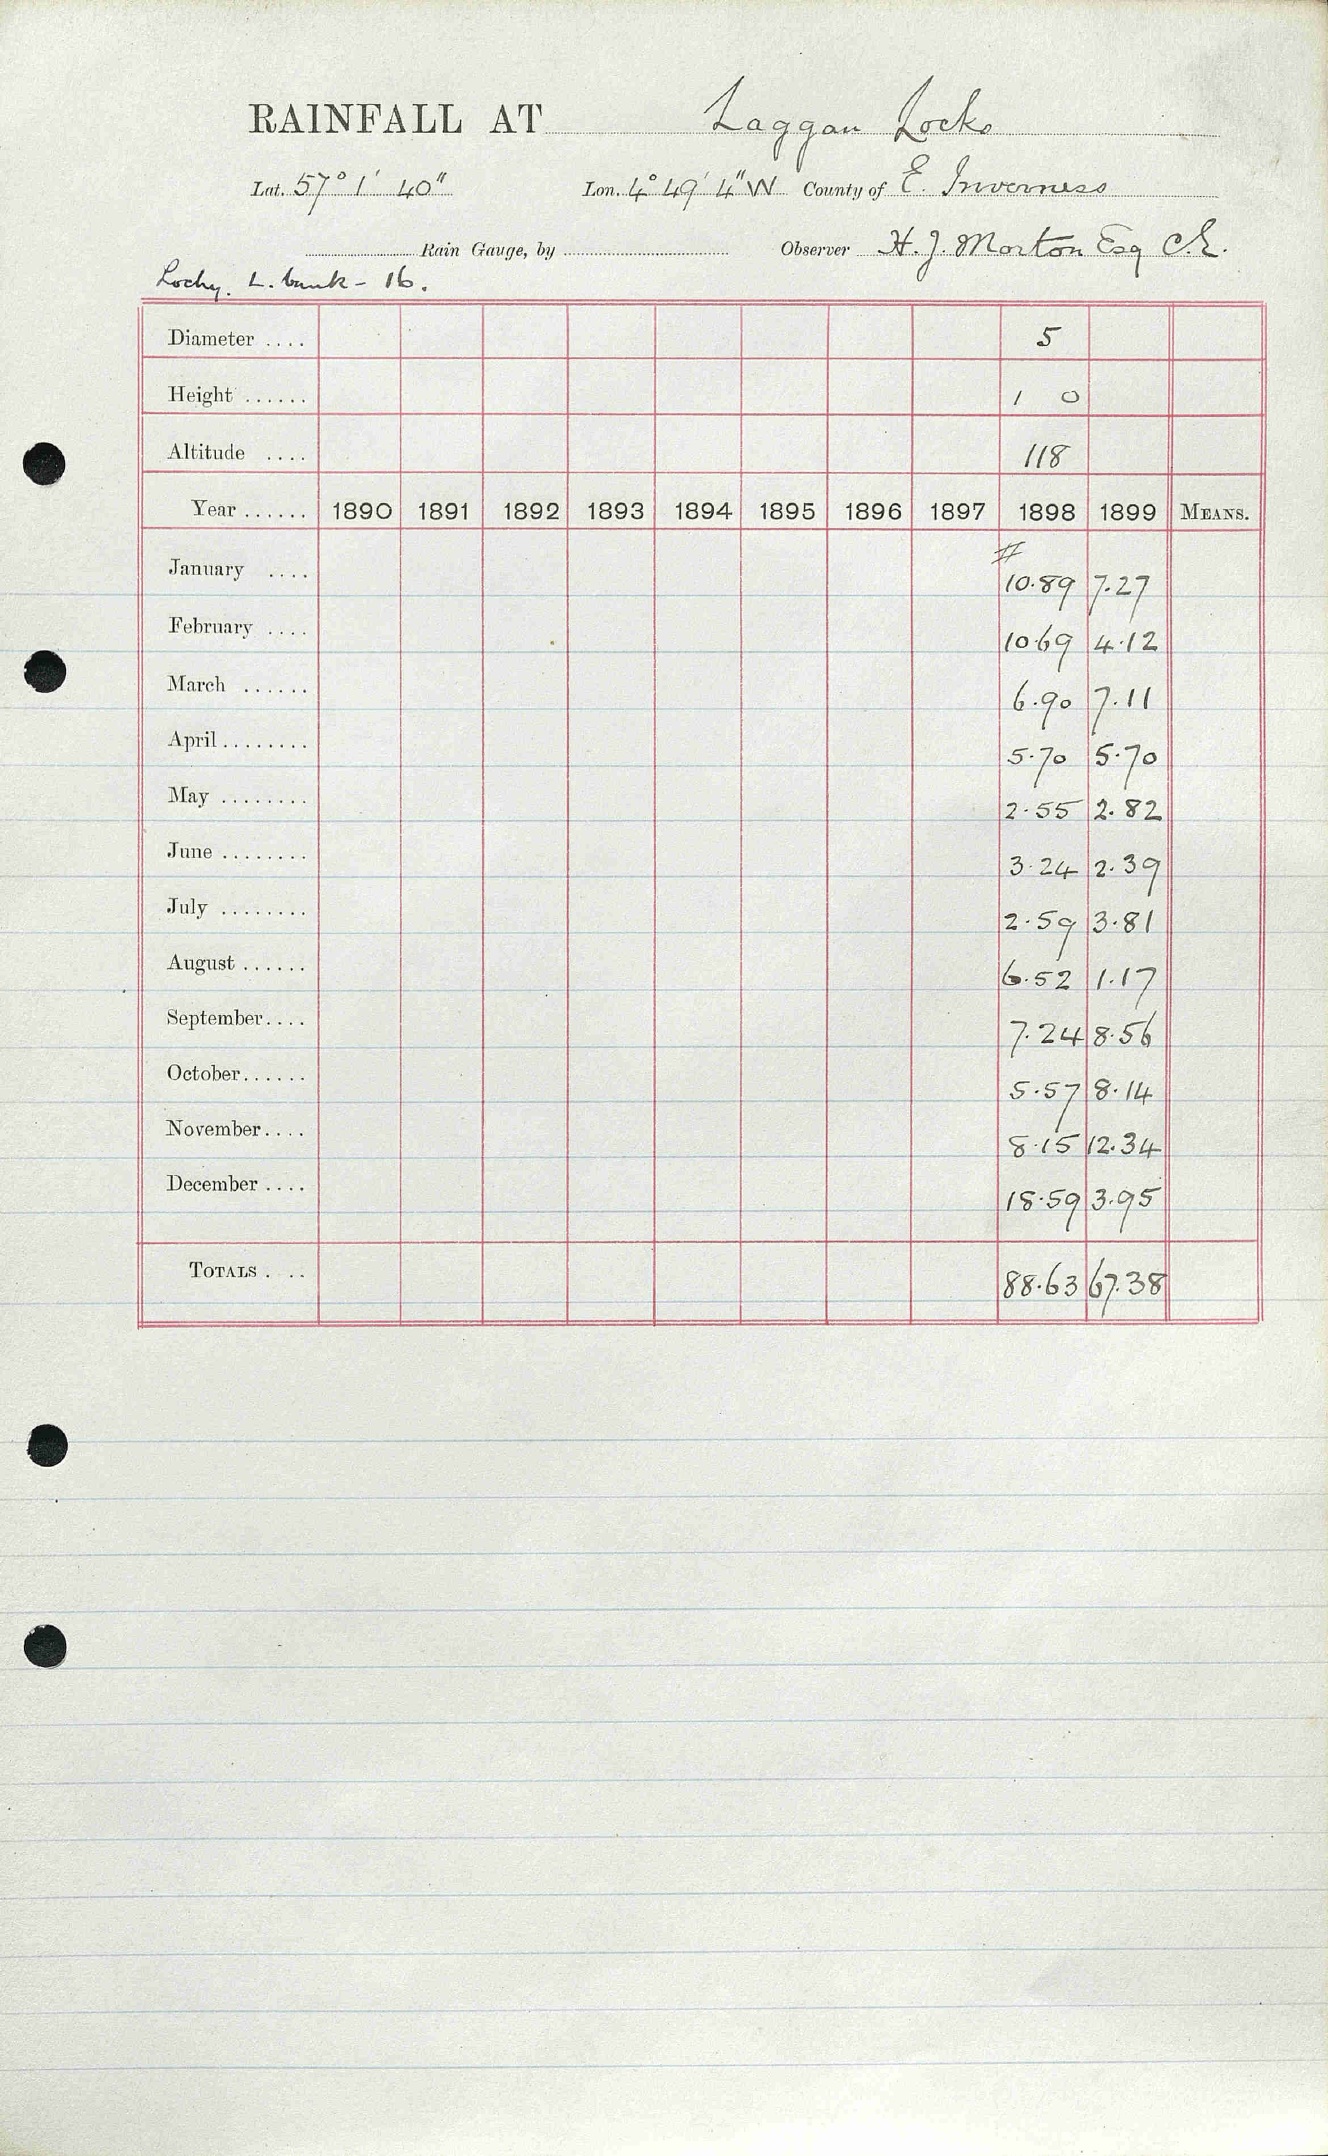 RAINFALL AT Laggan Locks
Lat. 57° 1' 40" Lon. 4° 49' 4" W County of E. Inverness
Rain Gauge, by Observer H. J. Morton Esq C.E.
Lochy. L. bank - 16.
Diameter .... 5
Height ...... 1 0
Altitude .... 118
Year ...... 1890 1891 1892 1893 1894 1895 1896 1897 1898 1899 MEANS.
#
January .... 10.89 7.27
February .... 10.69 4.12
March ...... 6.90 7.11
April ........ 5.70 5.70
May ........ 2.55 2.82
June ........ 3.24 2.39
July ........ 2.59 3.81
August ...... 6.52 1.17
September.... 7.24 8.56
October...... 5.57 8.14
November.... 8.15 12.34
December .... 18.59 3.95
TOTALS . .. 88.63 67.38